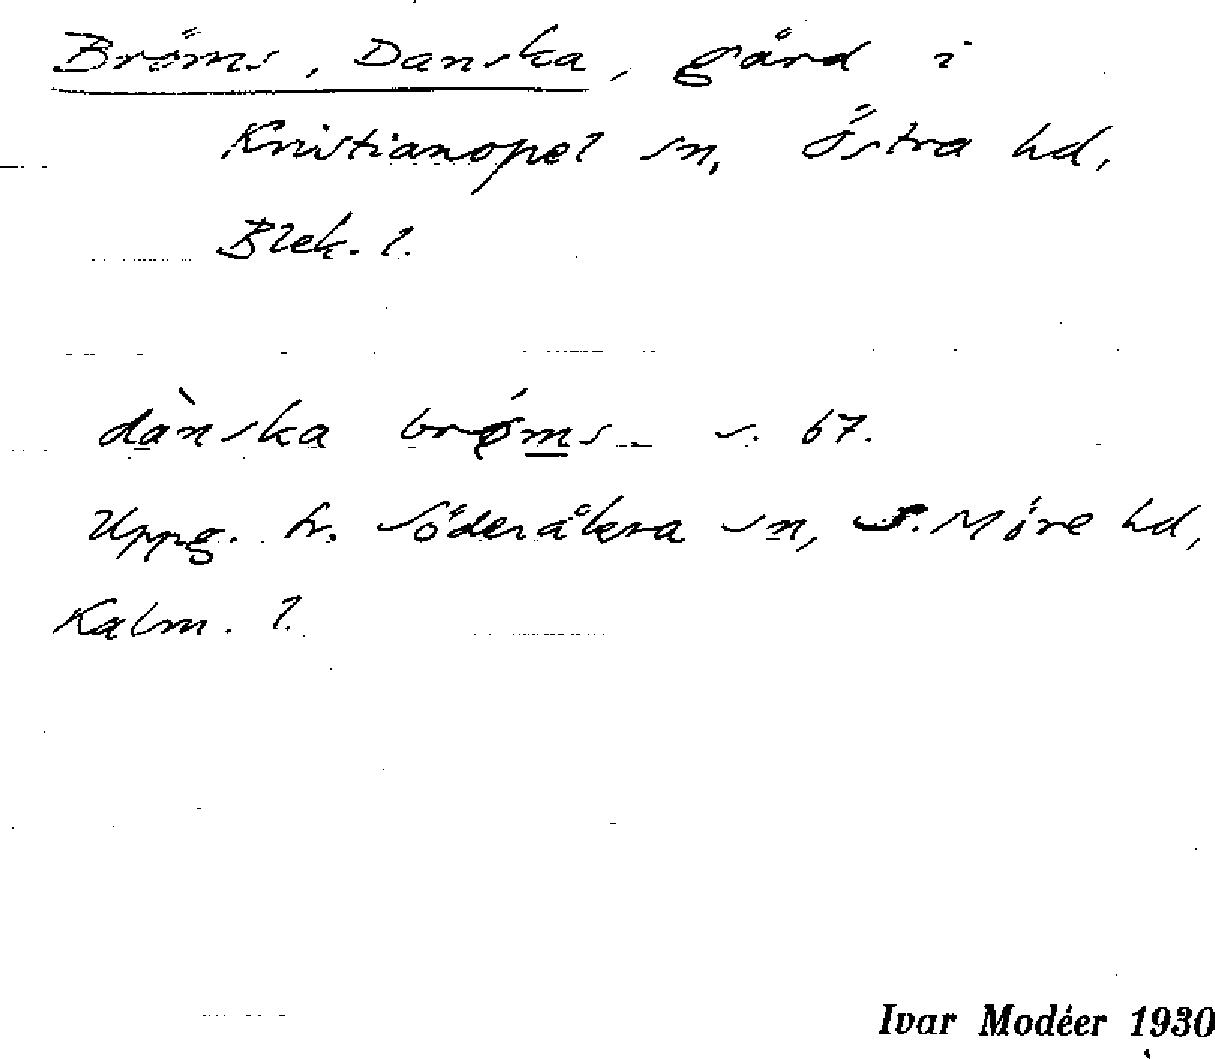 Bröms, Danska, gård i
Kristianopel sn, Östra hd,
Blek. l.
dànska brǿms s. 67.
Uppg. fr. Söderåkra sn, S. Möre hd,
Kalm. l.
Ivar Modéer 1930